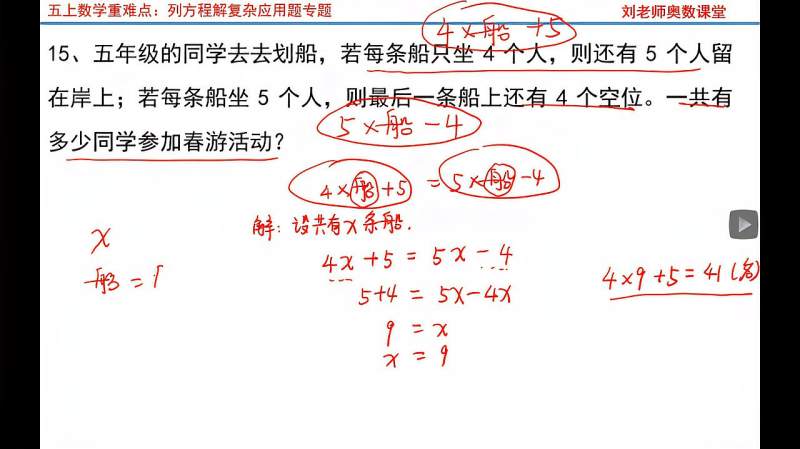 五上数学重难点：列方程解复杂应用题专题
刘老师奥数课堂
4×船+5
15、五年级的同学去去划船，若每条船只坐 4 个人，则还有 5 个人留
在岸上；若每条船坐 5 个人，则最后一条船上还有 4 个空位。一共有
5×船-4
多少同学参加春游活动？
4×船+5 = 5×船-4
解：设共有x条船.
x
4x+5 = 5x-4
船=
4×9+5=41(名)
5+4 = 5x-4x
9 = x
x = 9